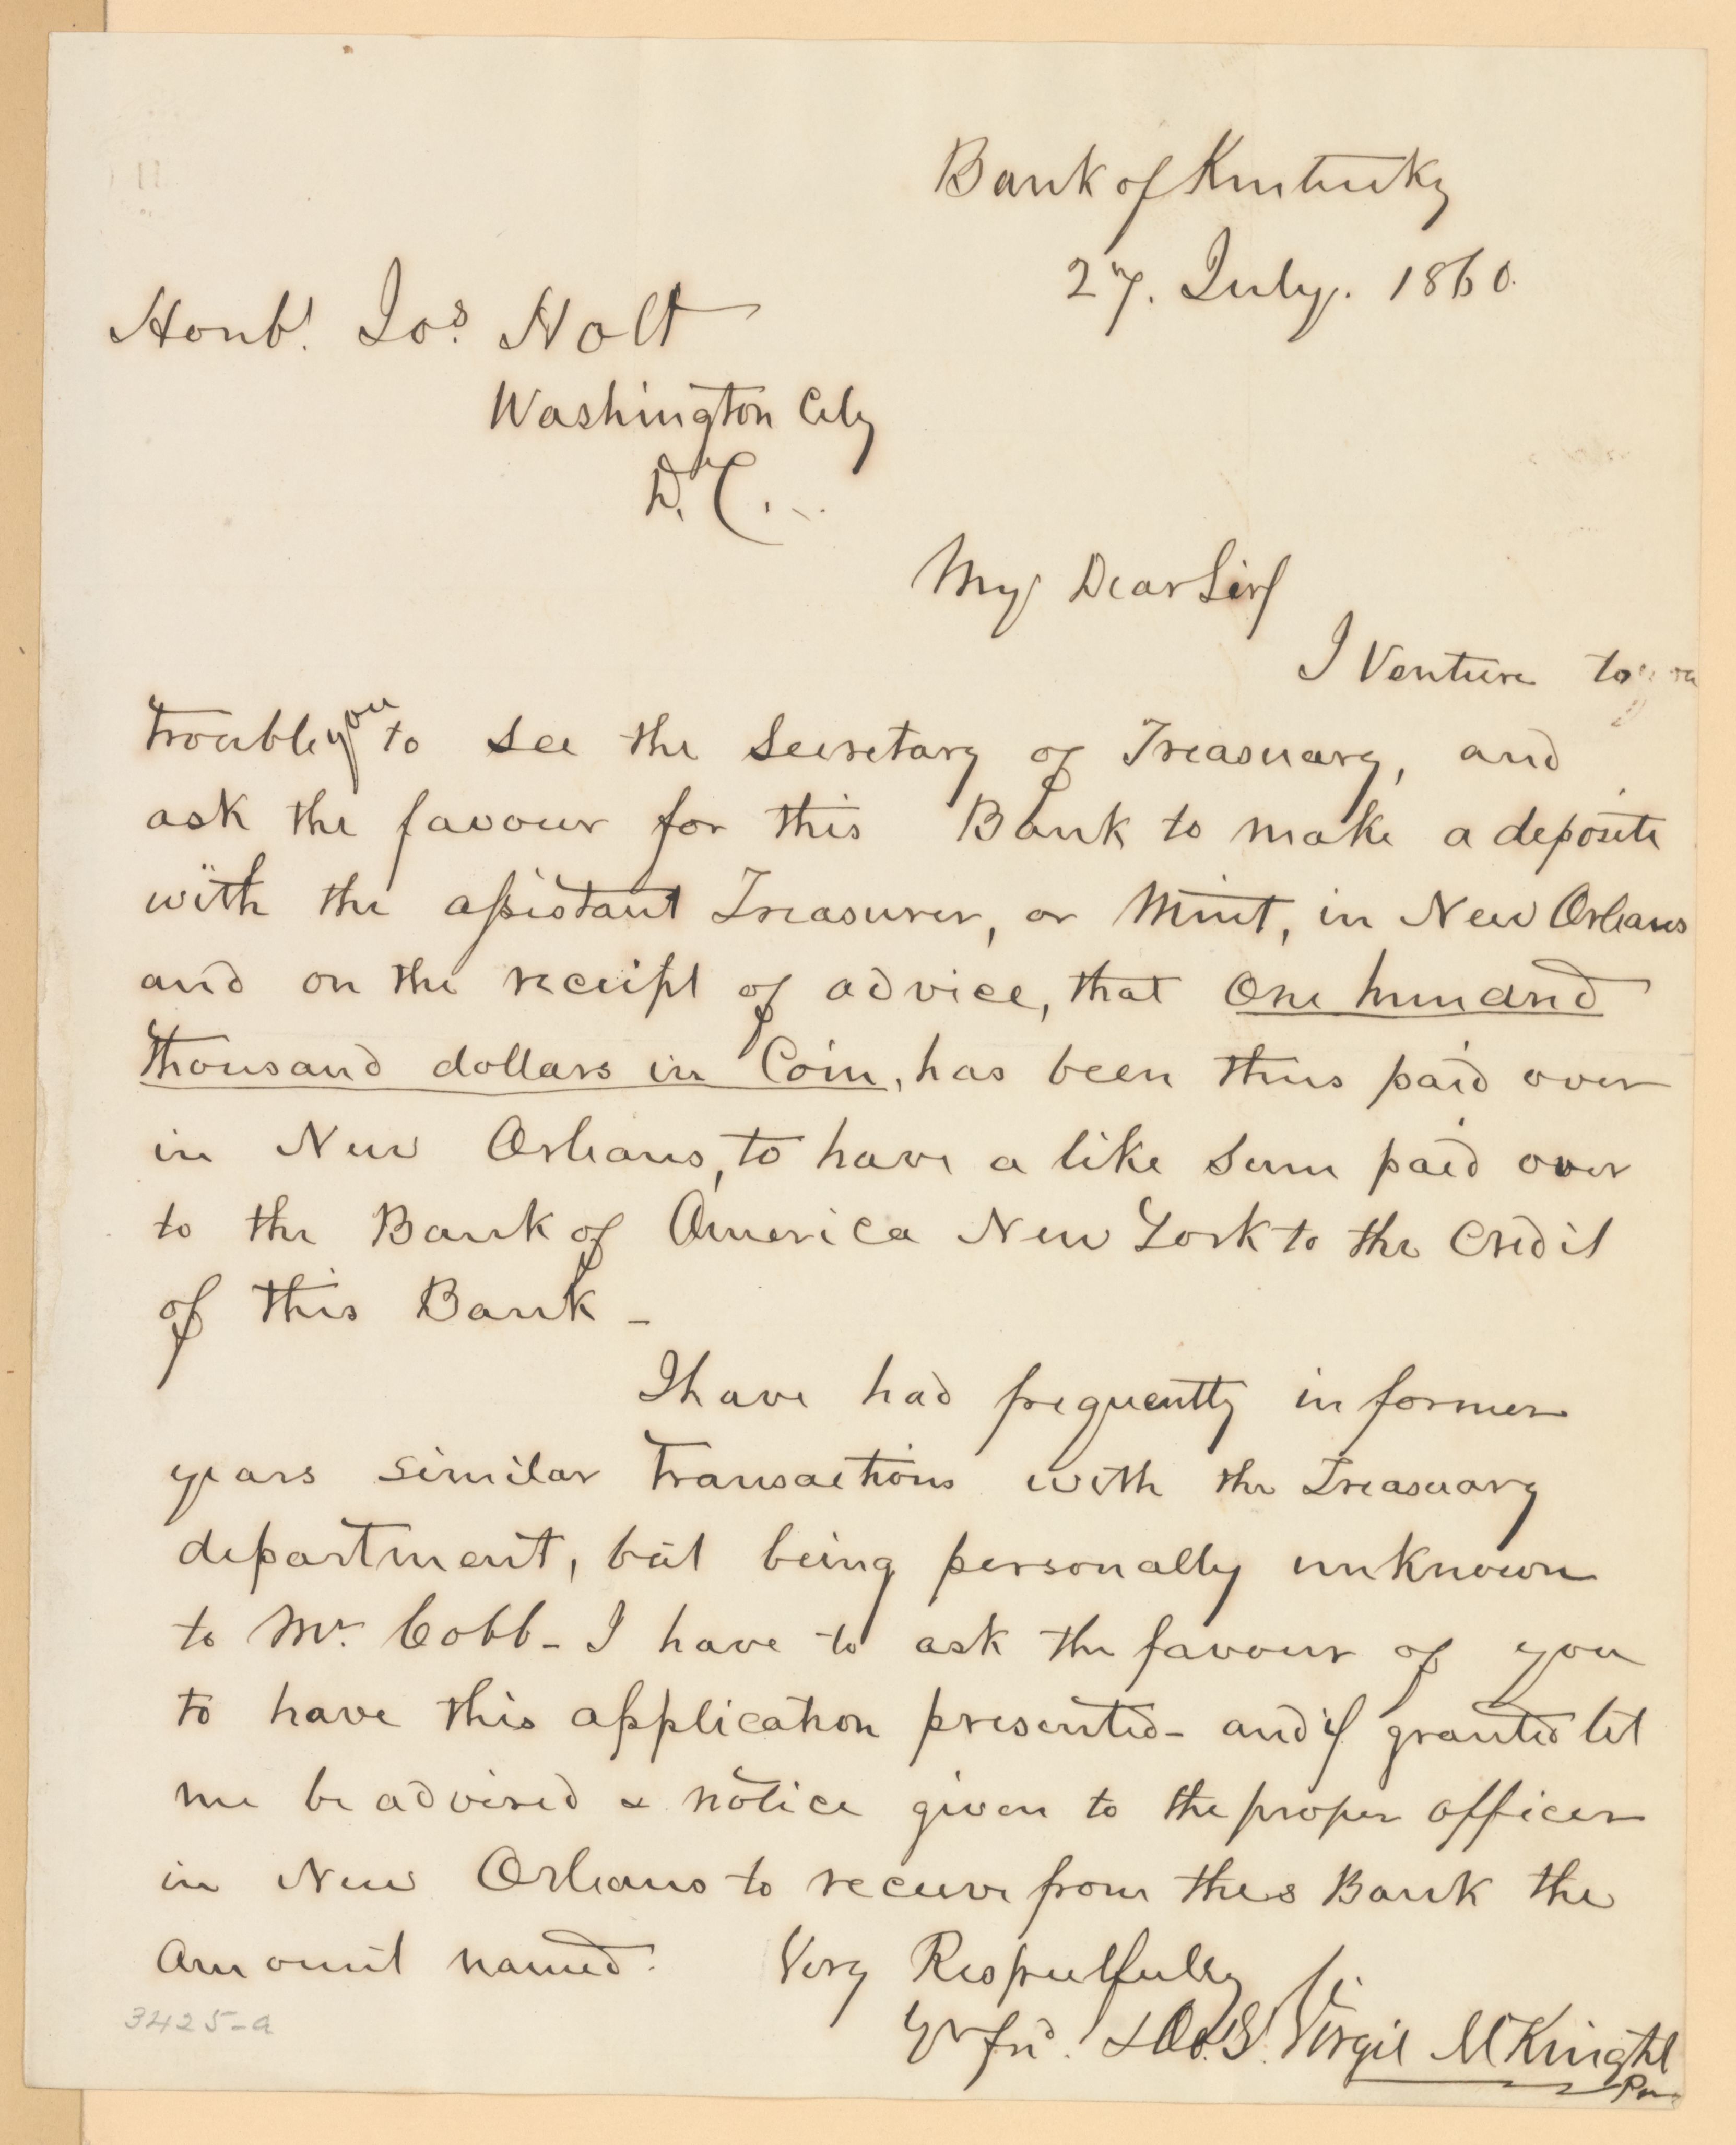 Bank of Kentucky
27. July. 1860.
Honbl. Jos. Holt
Washington City
D.C.
My Dear Sir
I Venture to
trouble you to see the Secretary of Treasuary, and
ask the favour for this Bank to make a deposite
with the assistant Treasurer, or Mint, in New Orleans
and on the receipt of advice, that One hundred
thousand dollars in Coin, has been thus paid over
in New Orleans, to have a like sum paid over
to the Bank of America New York to the Credit
of this Bank -
I have had frequently in former
years similar transactions with the Treasuary
department, but being personally unknown
to Mr. Cobb - I have to ask the favour of you
to have this application presented - and if granted let
me be advised & notice given to the proper officer
in New Orleans to receive from this Bank the
amount named. Very Respectfully
Yr frd. & Ob. S. Virgil McKnight
3425-a